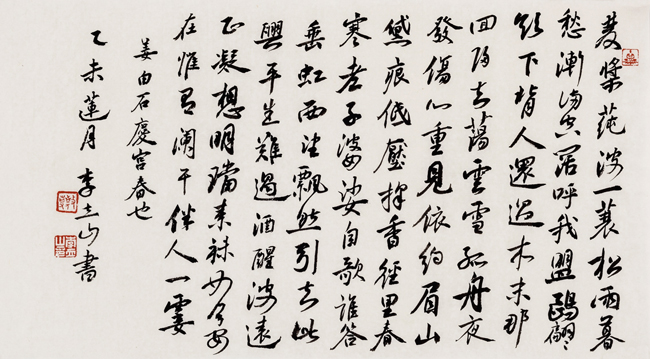 雙槳莼波一蓑松雨暮
愁漸滿空闊呼我盟鷗翩翩
欲下背人還過木末那
回歸去蕩雲雪孤舟夜
發傷心重見依約眉山
黛痕低壓採香徑里春
寒老子婆娑自歌誰答
垂虹西望飄然引去此
興平生難遏酒醒波遠
正凝想明璫素襪如今安
在惟有闌干伴人一霎
姜白石慶宮春也
乙未蓮月李立山書